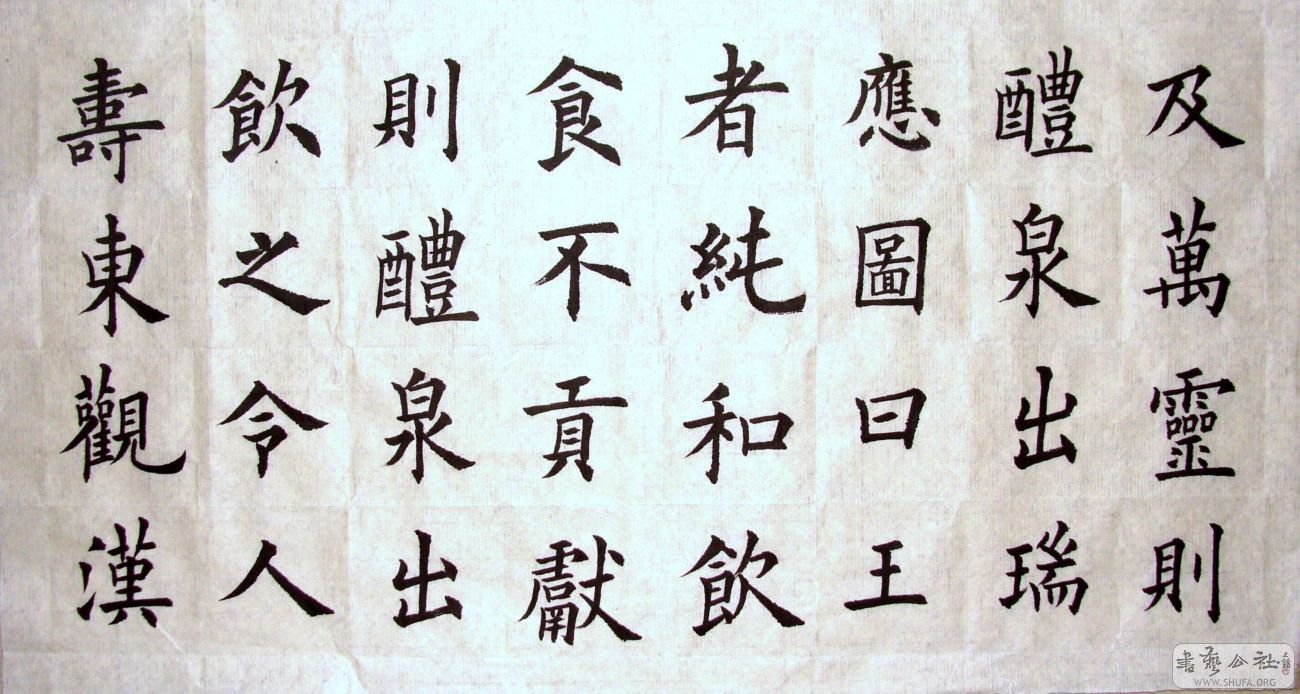 及萬靈則
醴泉出瑞
應圖曰王
者純和飲
食不貢獻
則醴泉出
飲之令人
壽東觀漢
書藝公社
WWW.SHUFA.ORG